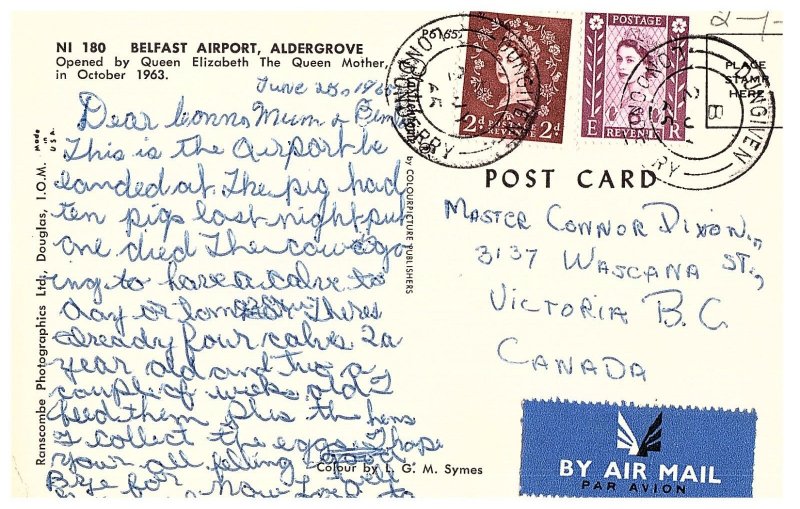 NI 180 BELFAST AIRPORT, ALDERGROVE
Opened by Queen Elizabeth The Queen Mother,
in October 1963.
Dear Conno, Mum &
This is the airport be
landed at. The pig had
ten pigs last night but
one died The cow
ing to have a calve to
day or There's
already four calves 2a
year old and two a
couple of weeks old I
feed them plus the hens
I collect the eggs. I hope
your all felling good
Bye for Now
Made in U.S.A.
Ranscombe Photographics Ltd., Douglas, I.O.M.
by COLOURPICTURE PUBLISHERS
Colour by L. G. M. Symes
2d POSTAGE REVENUE 2d
POSTAGE
E REVENUE R
DUNGIVEN
DUNGIVEN
PLACE
STAMP
HERE
POST CARD
MASTER CONNOR DIXON,
3137 WASCANA ST.,
VICTORIA B.C.
CANADA
BY AIR MAIL
PAR AVION